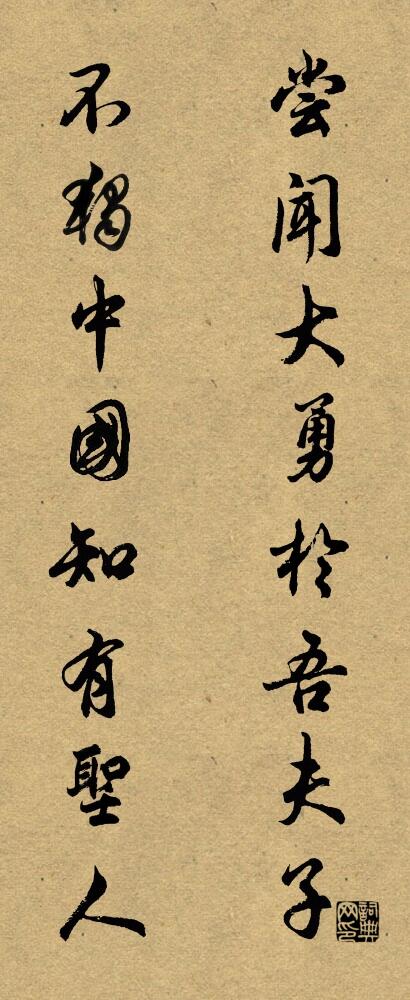 尝闻大勇於吾夫子
不獨中國知有聖人
詞典网印